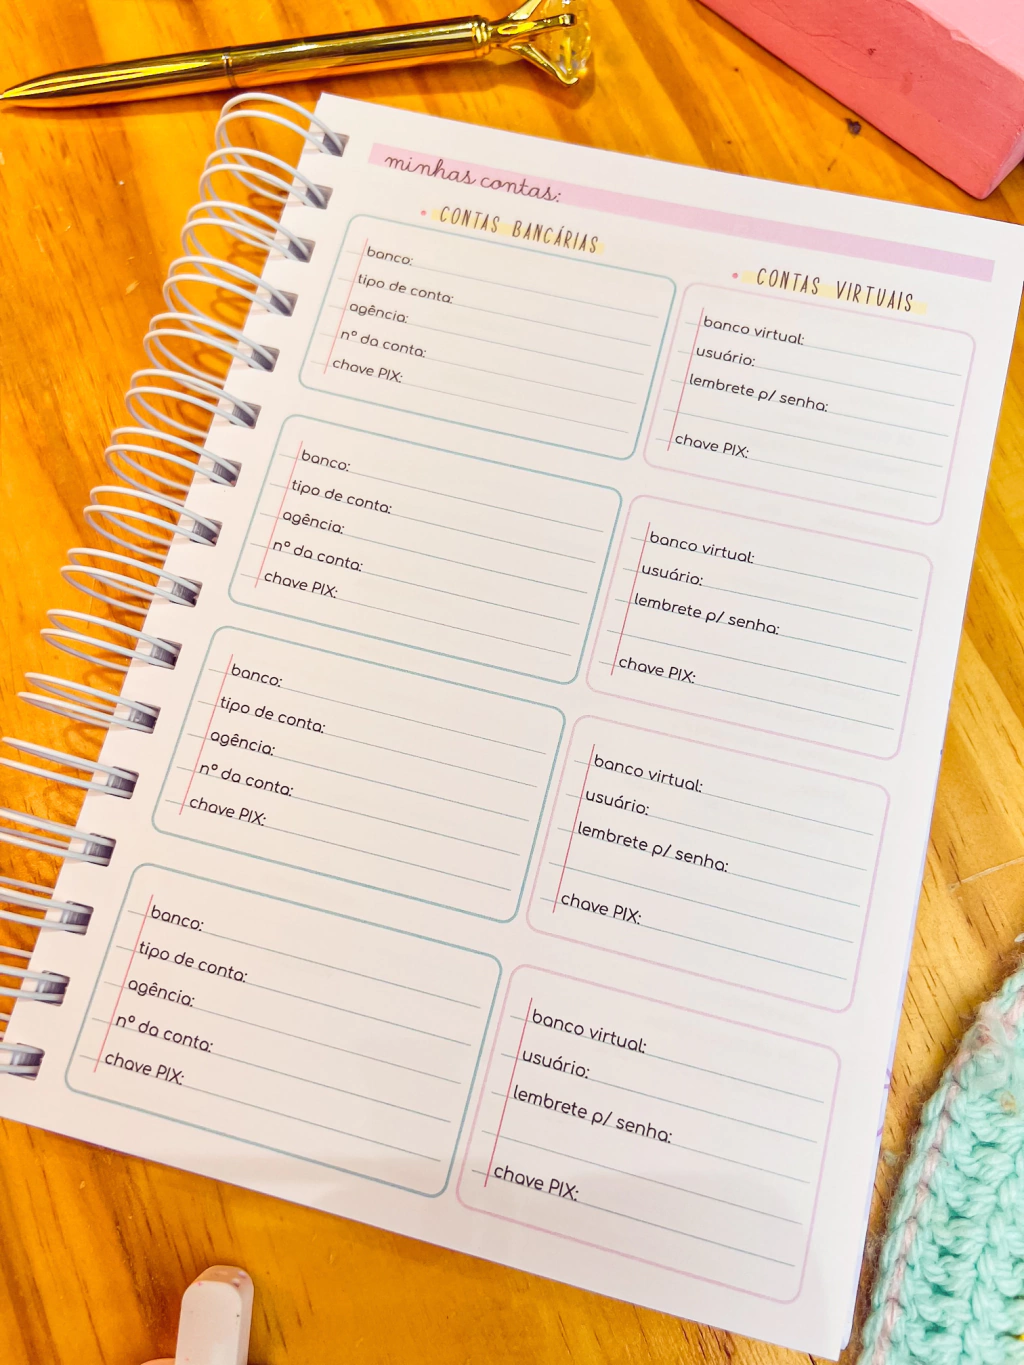 minhas contas:
CONTAS BANCÁRIAS
banco:
tipo de conta:
agência:
nº da conta:
chave PIX:
banco:
tipo de conta:
agência:
nº da conta:
chave PIX:
banco:
tipo de conta:
agência:
nº da conta:
chave PIX:
banco:
tipo de conta:
agência:
nº da conta:
chave PIX:
CONTAS VIRTUAIS
banco virtual:
usuário:
lembrete p/ senha:
chave PIX:
banco virtual:
usuário:
lembrete p/ senha:
chave PIX:
banco virtual:
usuário:
lembrete p/ senha:
chave PIX:
banco virtual:
usuário:
lembrete p/ senha:
chave PIX: